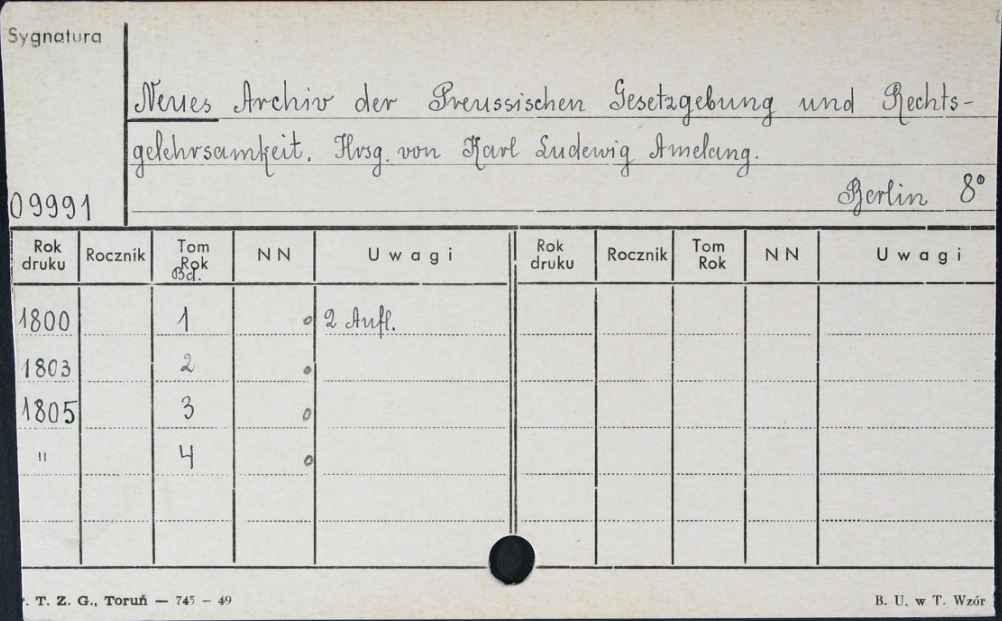 Sygnatura
Neues Archiv der Preussischen Gesetzgebung und Rechts-
gelehrsamkeit. Hrsg. von Karl Ludewig Amelang.
09991 Berlin 8°
Rok druku Rocznik Tom Rok Bd. NN Uwagi Rok druku Rocznik Tom Rok NN Uwagi
1800 1 o 2 Aufl.
1803 2 o
1805 3 o
" 4 o
. T. Z. G., Toruń — 745 - 49 B. U. w T. Wzór